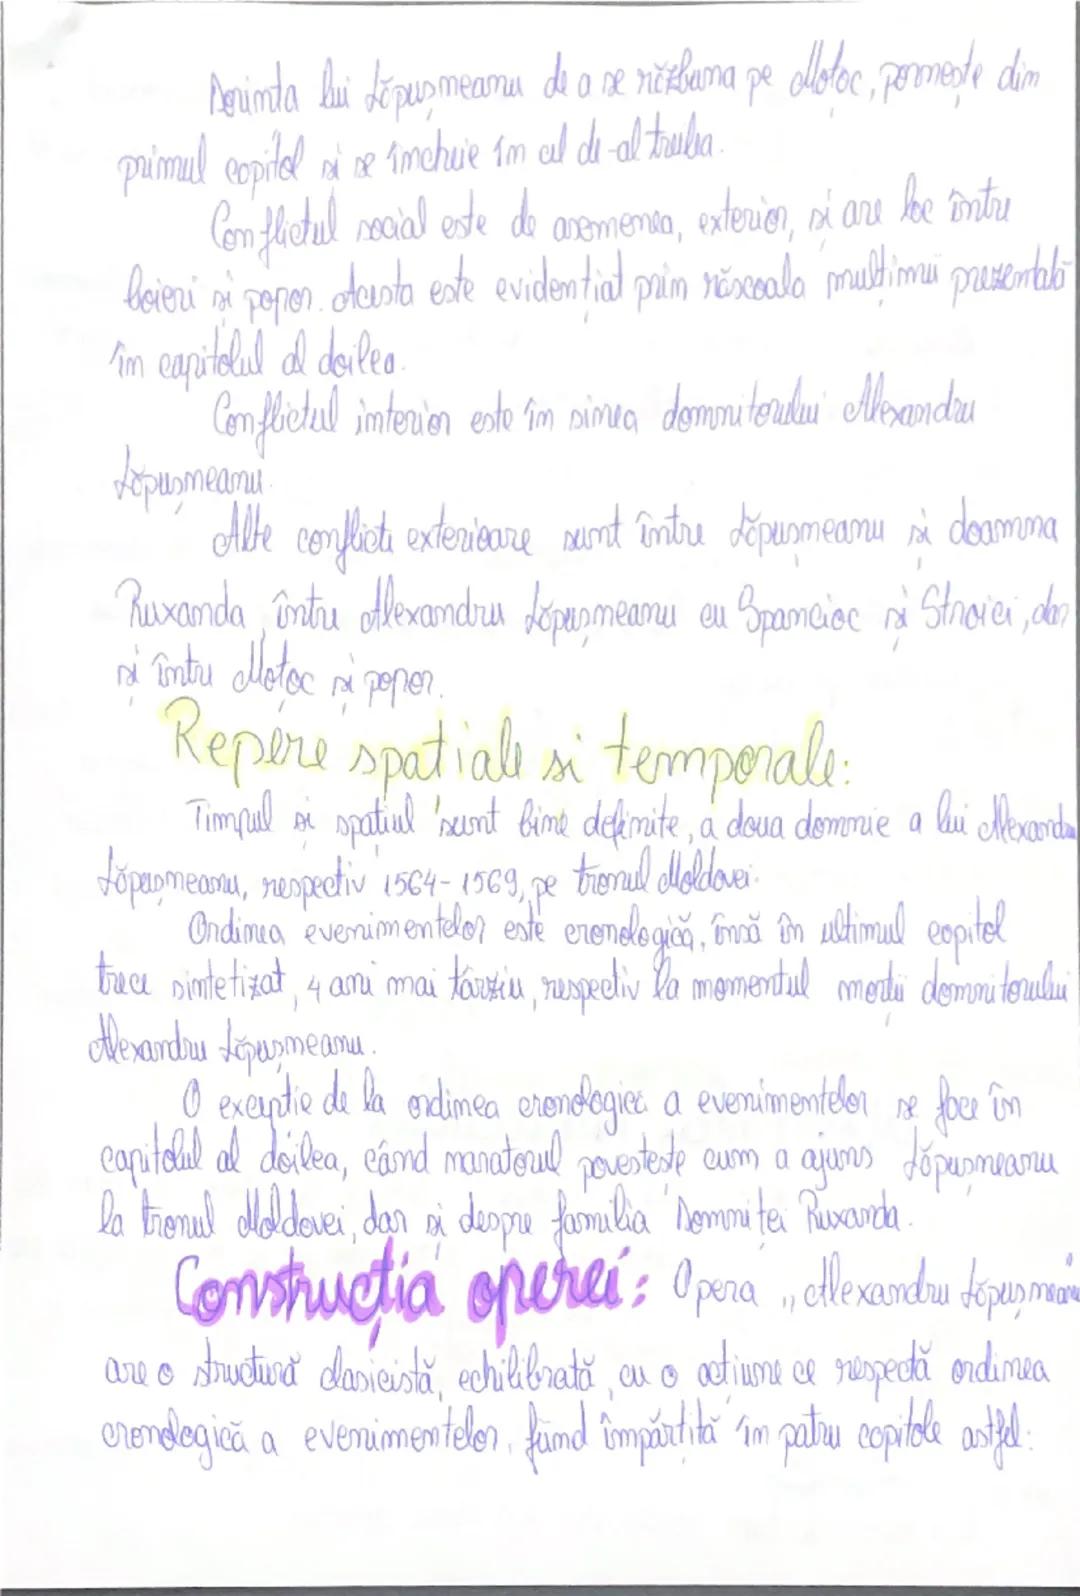 Dorința lui Lăpușneanu de a se răzbuna pe Moțoc, pornește din
primul capitol și se închie în cel de-al treilea.
Conflictul social este de asemenea, exterior, și are loc între
boieri și popor. Acesta este evidențiat prin răscoala mulțimii prezentată
în capitolul al doilea.
Conflictul interior este în sinea domnitorului Alexandru
Lăpușneanu.
Alte conflicte exterioare sunt între Lăpușneanu și doamna
Ruxanda, între Alexandru Lăpușneanu cu Spancioc și Stroici, dar
și între Moțoc și popor.
Repere spatiale si temporale:
Timpul și spațiul sunt bine definite, a doua domnie a lui Alexandru
Lăpușneanu, respectiv 1564-1569, pe tronul Moldovei.
Ordinea evenimentelor este cronologică, însă în ultimul capitol
trece sintetizat, 4 ani mai târziu, respectiv la momentul morții domnitorului
Alexandru Lăpușneanu.
O excepție de la ordinea cronologică a evenimentelor se face în
capitolul al doilea, când naratorul povestește cum a ajuns Lăpușneanu
la tronul Moldovei, dar și despre familia Domniței Ruxanda.
Construcția operei: Opera „Alexandru Lăpușneanu"
are o structură clasicistă, echilibrată, cu o acțiune ce respectă ordinea
cronologică a evenimentelor, fiind împărțită în patru capitole astfel: